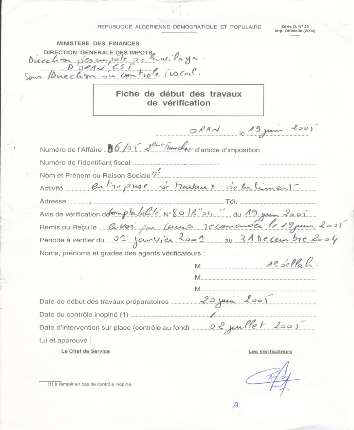 REPUBLIQUE ALGERIENNE DEMOCRATIQUE ET POPULAIRE
Série D, N° 25
Imp. Officielle (2004)
MINISTERE DES FINANCES
DIRECTION GENERALE DES IMPOTS
Direction des impots de la wilaya
D'ORAN EST
Sous Direction du controle fiscal.
Fiche de début des travaux
de vérification
ORAN le 19 juin 2005
Numéro de l'Affaire 06/05 2ème Tranche d'article d'imposition
Numéro de l'identifiant fiscal
Nom et Prénom ou Raison Sociale
Activité entreprise de travaux de batiment
Adresse Tél.
Avis de vérification de comptabilité N° du 19 juin 2005
Remis ou Reçu le envoi par recommandée le 19 juin 2005
Période à vérifier du 01 janvier 2001 au 31 Decembre 2004
Noms, prénoms et grades des agents vérificateurs :
M
M
M
Date de début des travaux préparatoires 20 juin 2005
Date du contrôle inopiné (1) /
Date d'intervention sur place (contrôle au fond) 02 juillet 2005
Lu et approuvé :
Le Chef de Service
Les Vérificateurs
(1) à remplir en cas de contrôle inopiné.
A